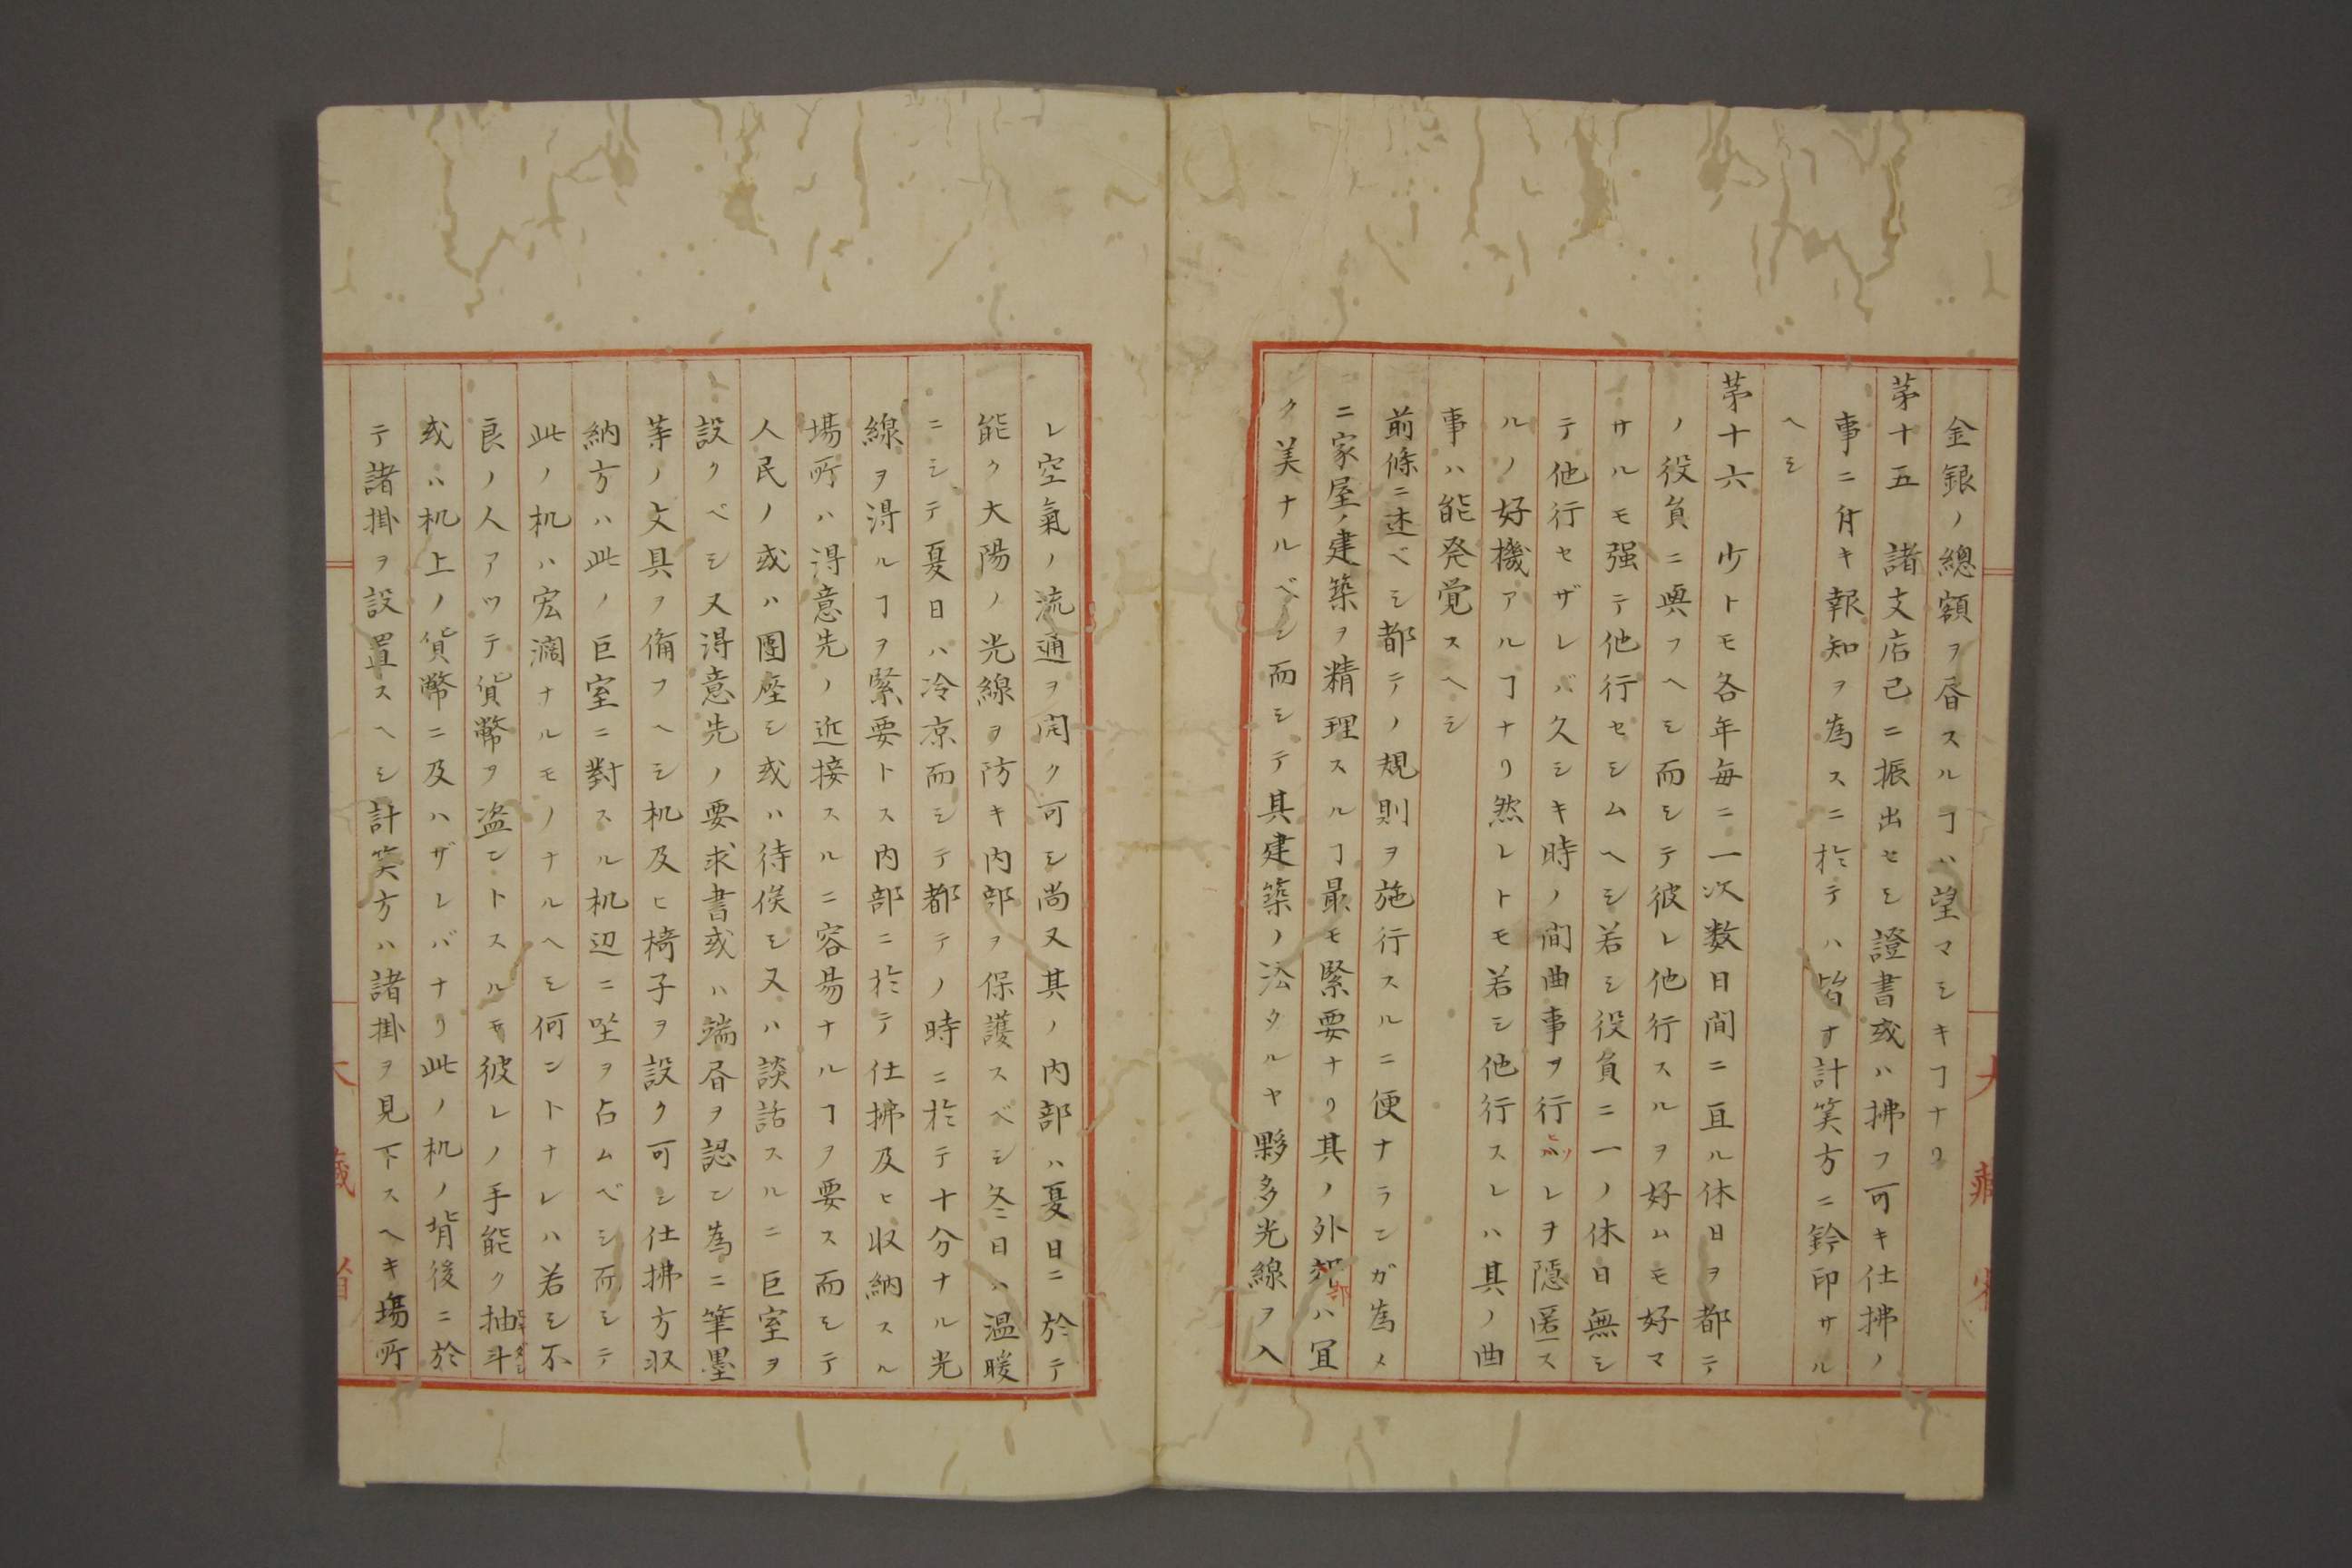 金銀ノ總額ヲ畄スルヿハ望マシキヿナリ
第十五　諸支店已ニ振出セシ證書或ハ拂フ可キ仕拂ノ
事ニ付キ報知ヲ為スニ於テハ皆ナ計筭方ニ鈐印サル
ヘシ
第十六　少トモ各年毎ニ一次数日間ニ亘ル休日ヲ都テ
ノ役員ニ與フヘシ而シテ彼レ他行スルヲ好ムモ好マ
サルモ强テ他行セシムヘシ若シ役員ニ一ノ休日無シ
テ他行セザレバ久シキ時ノ間曲事ヲ行ヒ
ガツレヲ隠匿ス
ルノ好機アルヿナリ然レトモ若シ他行スレハ其ノ曲
事ハ能発覚スヘシ
前條ニ述ベシ都テノ規則ヲ施行スルニ便ナランガ為メ
ニ家屋ノ建築ヲ精理スルヿ最モ緊要ナリ其ノ外郊部ハ冝
ク美ナルベシ而シテ其建築ノ法タルヤ夥多光線ヲ入
大藏省
レ空氣ノ流通ヲ開ク可シ尚又其ノ内部ハ夏日ニ於テ
能ク大陽ノ光線ヲ防キ内部ヲ保護スベシ冬日ハ温暖
ニシテ夏日ハ冷凉而シテ都テノ時ニ於テ十分ナル光
線ヲ淂ルヿヲ緊要トス内部ニ於テ仕拂及ヒ収納スル
場所ハ淂意先ノ近接スルニ容易ナルヿヲ要ス而シテ
人民ノ或ハ團座シ或ハ待俟シ又ハ談話スルニ巨室ヲ
設クベシ又淂意先ノ要求書或ハ端畄ヲ認ン為ニ筆墨
等ノ文具ヲ俻フヘシ机及ヒ椅子ヲ設ク可シ仕拂方収
納方ハ此ノ巨室ニ對スル机辺ニ坐ヲ占ムベシ而シテ
此ノ机ハ宏濶ナルモノナルヘシ何ントナレハ若シ不
良ノ人アツテ貨幣ヲ盗ントスルモ彼レノ手能ク抽斗ヒキダシ
或ハ机上ノ貨幣ニ及ハザレバナリ此ノ机ノ背後ニ於
テ諸掛ヲ設置スヘシ計筭方ハ諸掛ヲ見下スヘキ場所
大藏省